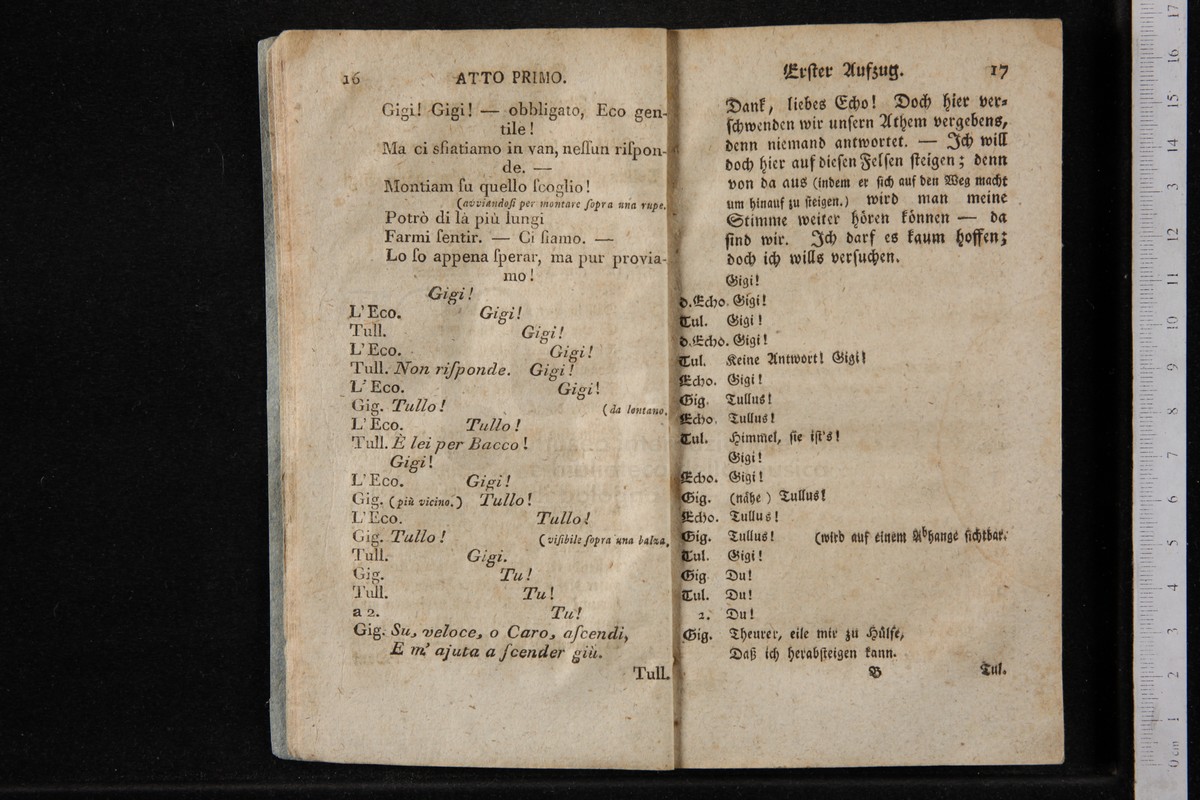 16 ATTO PRIMO.
Gigi! Gigi! — obbligato, Eco gen-
tile!
Ma ci sfiatiamo in van, neſſun riſpon-
de. —
Montiam ſu quello ſcoglio!
(avviandoſi per montare ſopra una rupe.
Potrò di là più lungi
Farmi ſentir. — Ci ſiamo. —
Lo ſo appena ſperar, ma pur provia-
mo!
Gigi!
L'Eco. Gigi!
Tull. Gigi!
L'Eco. Gigi!
Tull. Non riſponde. Gigi!
L'Eco. Gigi!
Gig. Tullo! (da lontano.
L'Eco. Tullo!
Tull. È lei per Bacco!
Gigi!
L'Eco. Gigi!
Gig. (più vicino.) Tullo!
L'Eco. Tullo!
Gig. Tullo! (viſibile ſopra una balza.
Tull. Gigi.
Gig. Tu!
Tull. Tu!
a 2. Tu!
Gig. Su, veloce, o Caro, aſcendi,
E m' ajuta a ſcender giù.
Tull.
Erſter Aufzug. 17
Dank, liebes Echo! Doch hier ver-
ſchwenden wir unſern Athem vergebens,
denn niemand antwortet. — Ich will
doch hier auf dieſen Felſen ſteigen; denn
von da aus (indem er ſich auf den Weg macht
um hinauf zu ſteigen.) wird man meine
Stimme weiter hören können — da
ſind wir. Ich darf es kaum hoffen;
doch ich wills verſuchen.
Gigi!
d. Echo. Gigi!
Tul. Gigi!
d. Echo. Gigi!
Tul. Keine Antwort! Gigi!
Echo. Gigi!
Gig. Tullus!
Echo. Tullus!
Tul. Himmel, ſie iſt's!
Gigi!
Echo. Gigi!
Gig. (nähe) Tullus!
Echo. Tullus!
Gig. Tullus! (wird auf einem Abhange ſichtbar.
Tul. Gigi!
Gig. Du!
Tul. Du!
2. Du!
Gig. Theurer, eile mir zu Hülfe,
Daß ich herabſteigen kann.
B Tul.